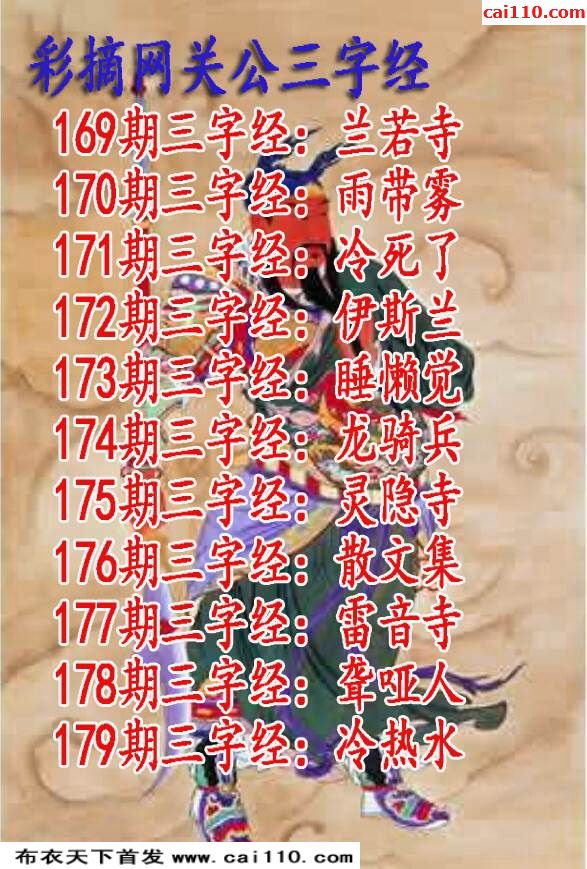 cai110.com
彩摘网关公三字经
169期三字经：兰若寺
170期三字经：雨带雾
171期三字经：冷死了
172期三字经：伊斯兰
173期三字经：睡懒觉
174期三字经：龙骑兵
175期三字经：灵隐寺
176期三字经：散文集
177期三字经：雷音寺
178期三字经：聋哑人
179期三字经：冷热水
布衣天下首发 www.cai110.com